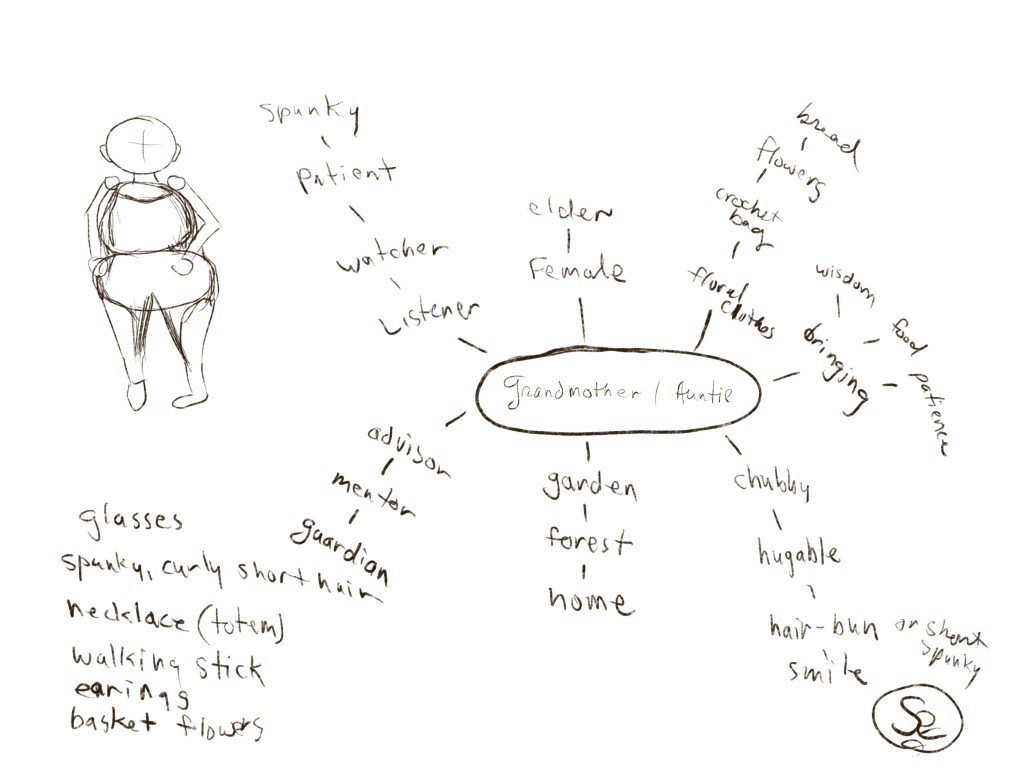 spunky
patient
watcher
Listener
elder
Female
bread
flowers
crochet
bag
floral
clothes
wisdom
food
patience
bringing
Grandmother / Auntie
advisor
mentor
guardian
garden
forest
home
chubby
hugable
hair-bun or short
spunky
smile
glasses
spunky, curly short hair
necklace (totem)
walking stick
earings
basket flowers